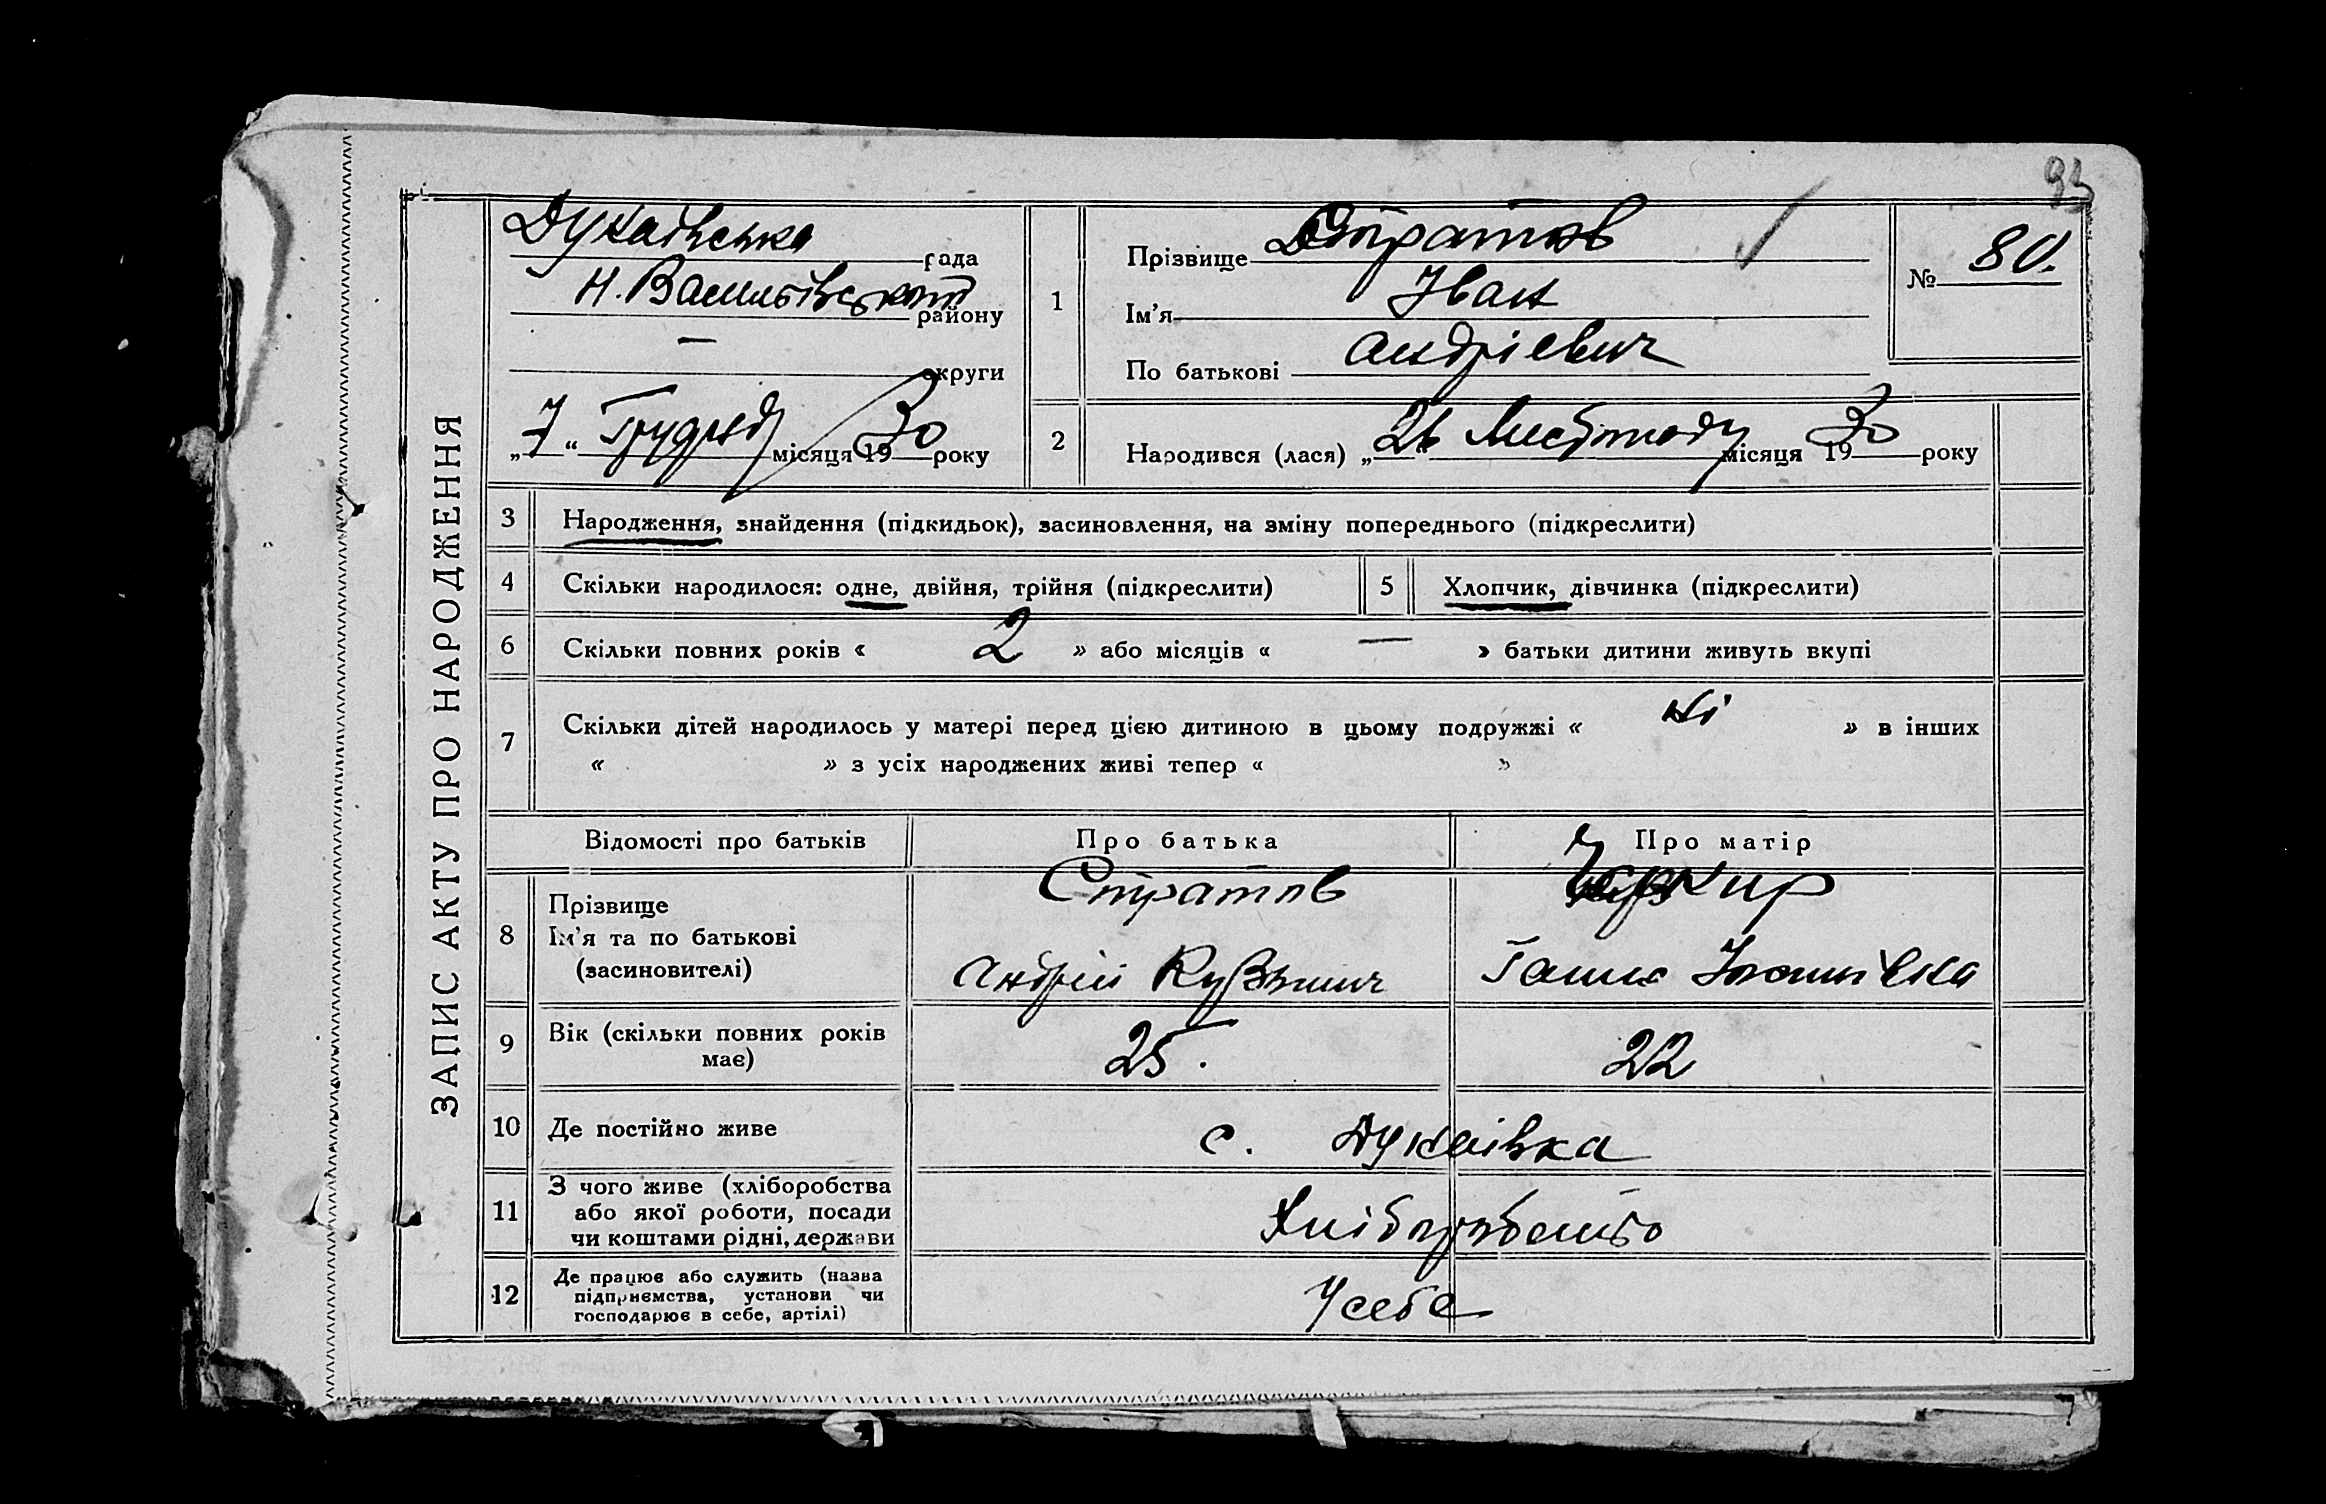 93
ЗАПИС АКТУ ПРО НАРОДЖЕННЯ
Дунаївська рада
Н. Васильівського району
— округи
„7“ Грудня місяця 1930 року
1
Прізвище Стратов
Ім’я Іван
По батькові Андрієвич
№ 80.
2 Народився (лася) „26“ Листопаду місяця 1930 року
3 Народження, знайдення (підкидьок), засиновлення, на зміну попереднього (підкреслити)
4 Скільки народилося: одне, двійня, трійня (підкреслити) 5 Хлопчик, дівчинка (підкреслити)
6 Скільки повних років « 2 » або місяців « — » батьки дитини живуть вкупі
7 Скільки дітей народилось у матері перед цією дитиною в цьому подружжі « ні » в інших
« » з усіх народжених живі тепер « »
Відомості про батьків Про батька Про матір
8 Прізвище Стратов
Ім’я та по батькові
(засиновителі) Андрій Кузьмич Ганна
9 Вік (скільки повних років має) 25. 22
10 Де постійно живе с. Дунаівка
11 З чого живе (хліборобства
або якої роботи, посади
чи коштами рідні, держави Хліборобство
12 Де працює або служить (назва
підприємства, установи чи
господарює в себе, артілі) У себе